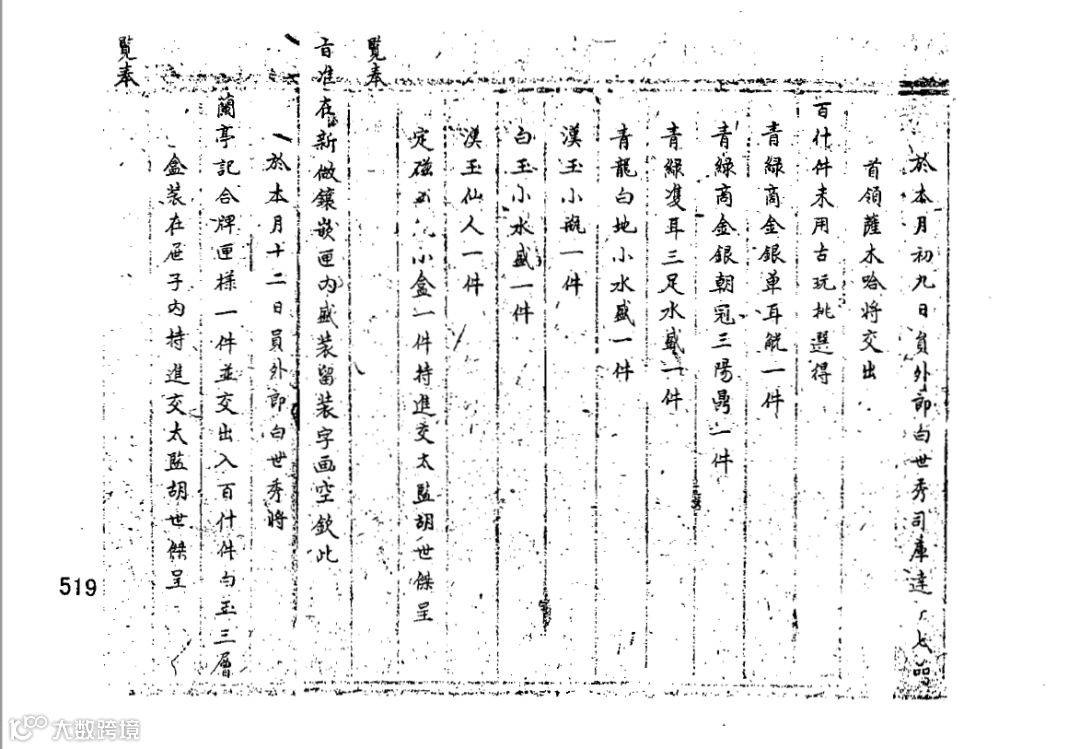 於本月初九日員外郎白世秀司庫達七品
首領薩木哈將交出
百什件未用古玩挑選得
青綠商金銀單耳觥一件
青綠商金銀朝冠三陽鼎一件
青綠雙耳三足水盛一件
青龍白地小水盛一件
漢玉小瓶一件
白玉小水盛一件
漢玉仙人一件
定磁小盒一件持進交太監胡世傑呈
覽奉
旨准在新做鑲嵌匣內盛裝留裝字画空欽此
於本月十二日員外郎白世秀將
蘭亭記合牌匣樣一件並交出入百什件白玉三層
盒裝在屜子內持進交太監胡世傑呈
覽奉
519
大数跨境